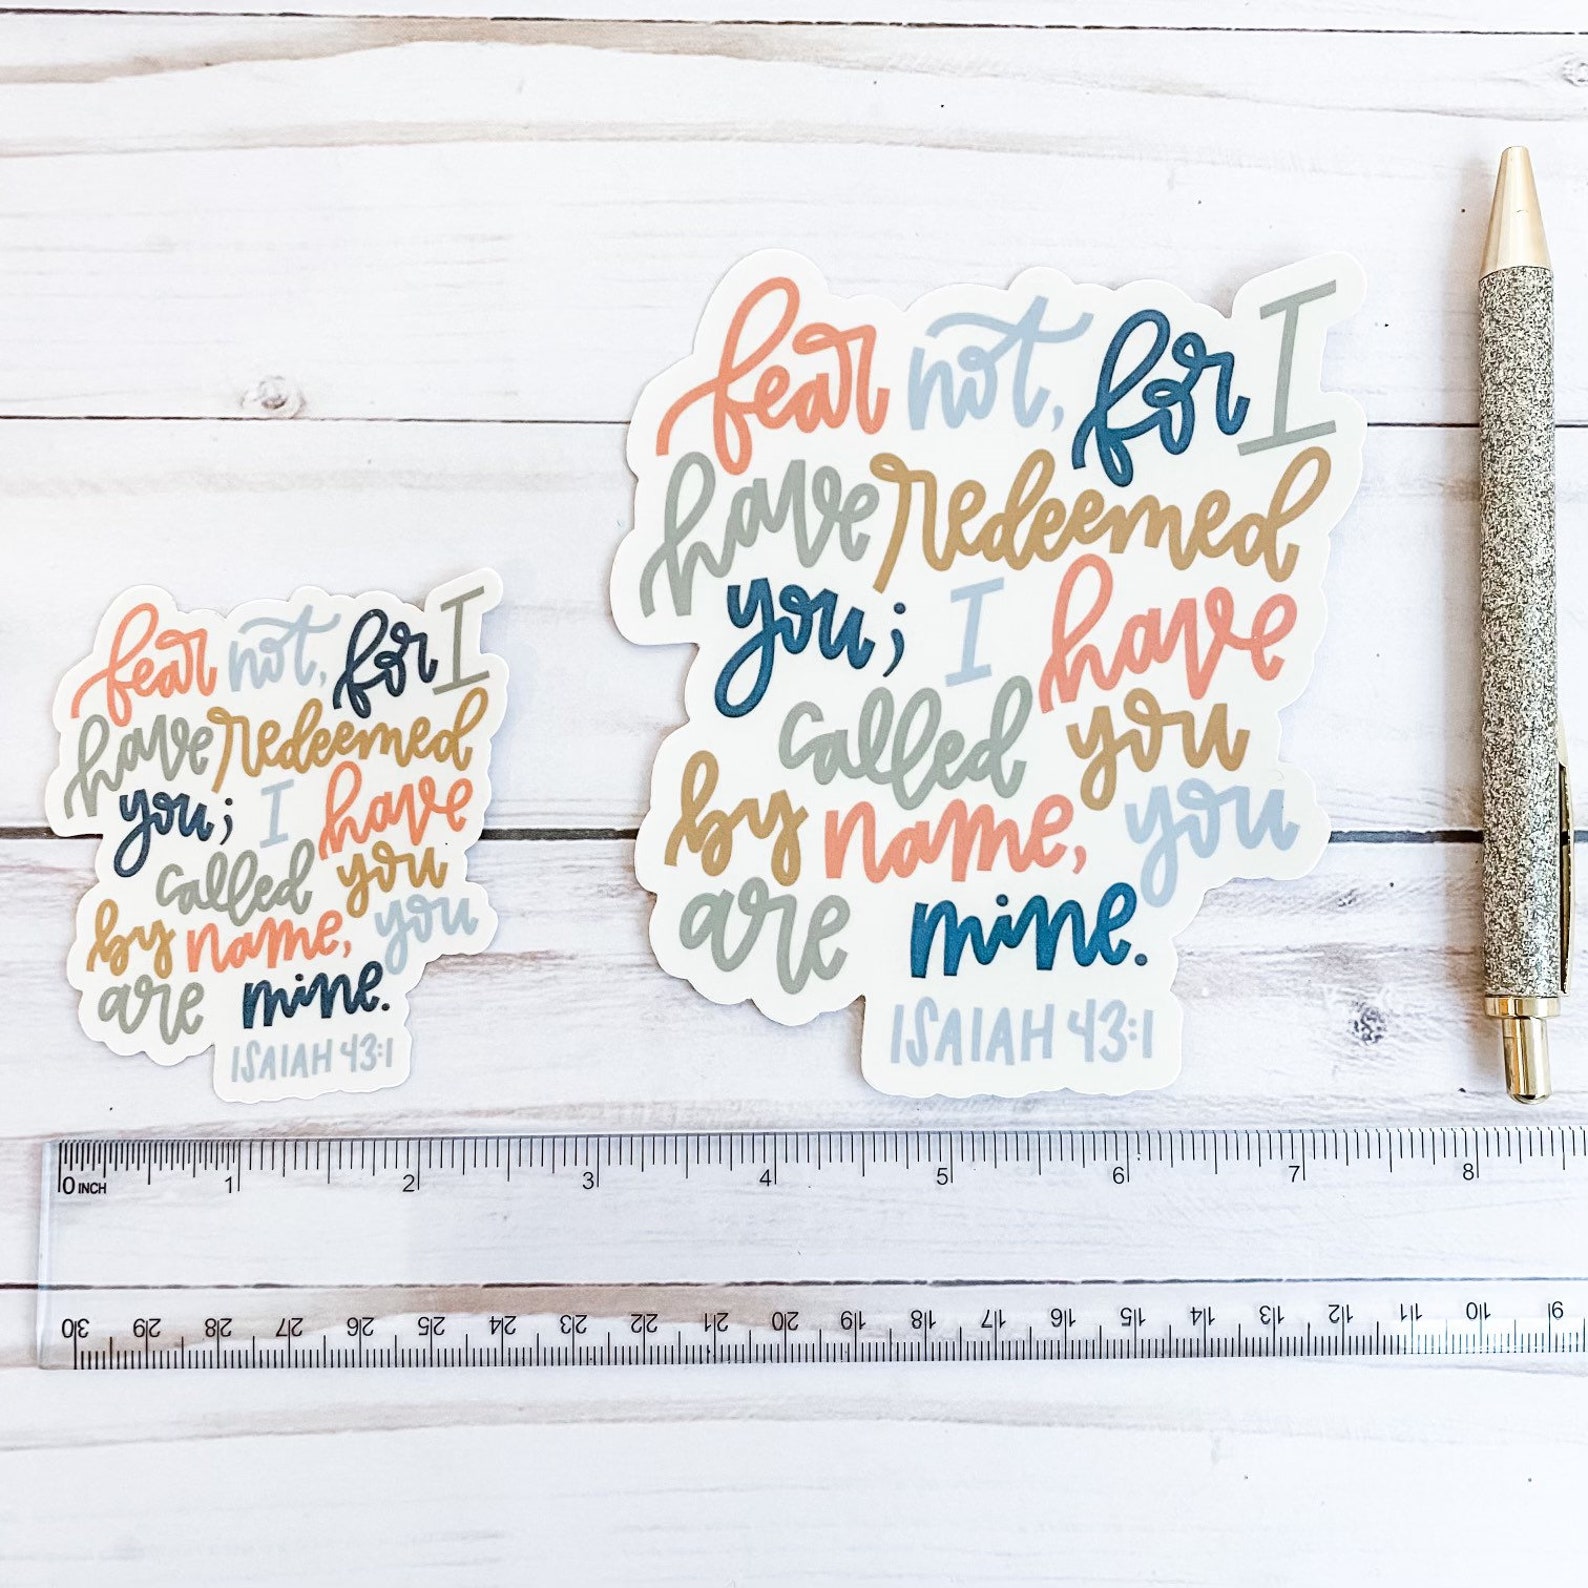 fear not, for I
have redeemed
you; I have
called you
by name, you
are mine.
ISAIAH 43:1
fear not, for I
have redeemed
you; I have
called you
by name, you
are mine.
ISAIAH 43:1
0 INCH 1 2 3 4 5 6 7 8
30 29 28 27 26 25 24 23 22 21 20 19 18 17 16 15 14 13 12 11 10 9